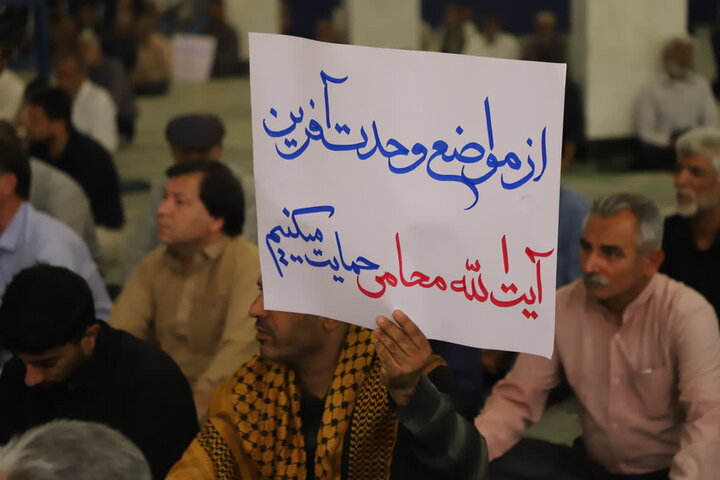 از مواضع وحدت آفرین
آیت الله محامی حمایت میکنیم